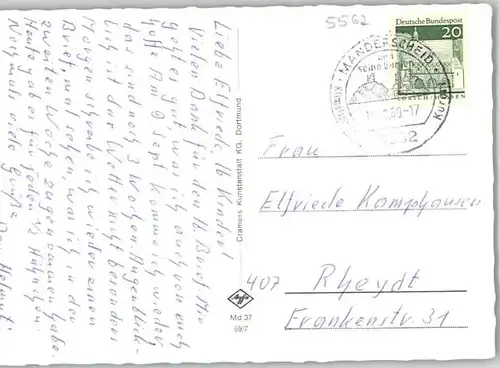 5562
Liebe Elfriede, lb Kinder!
Vielen Dank für den lb. Brief. Mir
geht es gut was ich auch von euch
hoffe. Am 9 Sept komme ich wieder
das sind noch 3 Wochen. Augenblick-
lich ist das Wetter nicht besonders
Morgen schreibe ich wieder einen
Brief, mal sehen, was ich in der
zweiten Woche zugenommen habe.
Heute gab es für jeden 1/2 Hähnchen.
Nochmal viele Grüße
Dein Helmut
Cramers Kunstanstalt KG, Dortmund
Agfa
Md 37
69/7
Deutsche Bundespost
20
MANDERSCHEID
und
seine Burgen
-17
Kurort
Frau
Elfriede Kamphausen
407 Rheydt
Frankenstr. 31